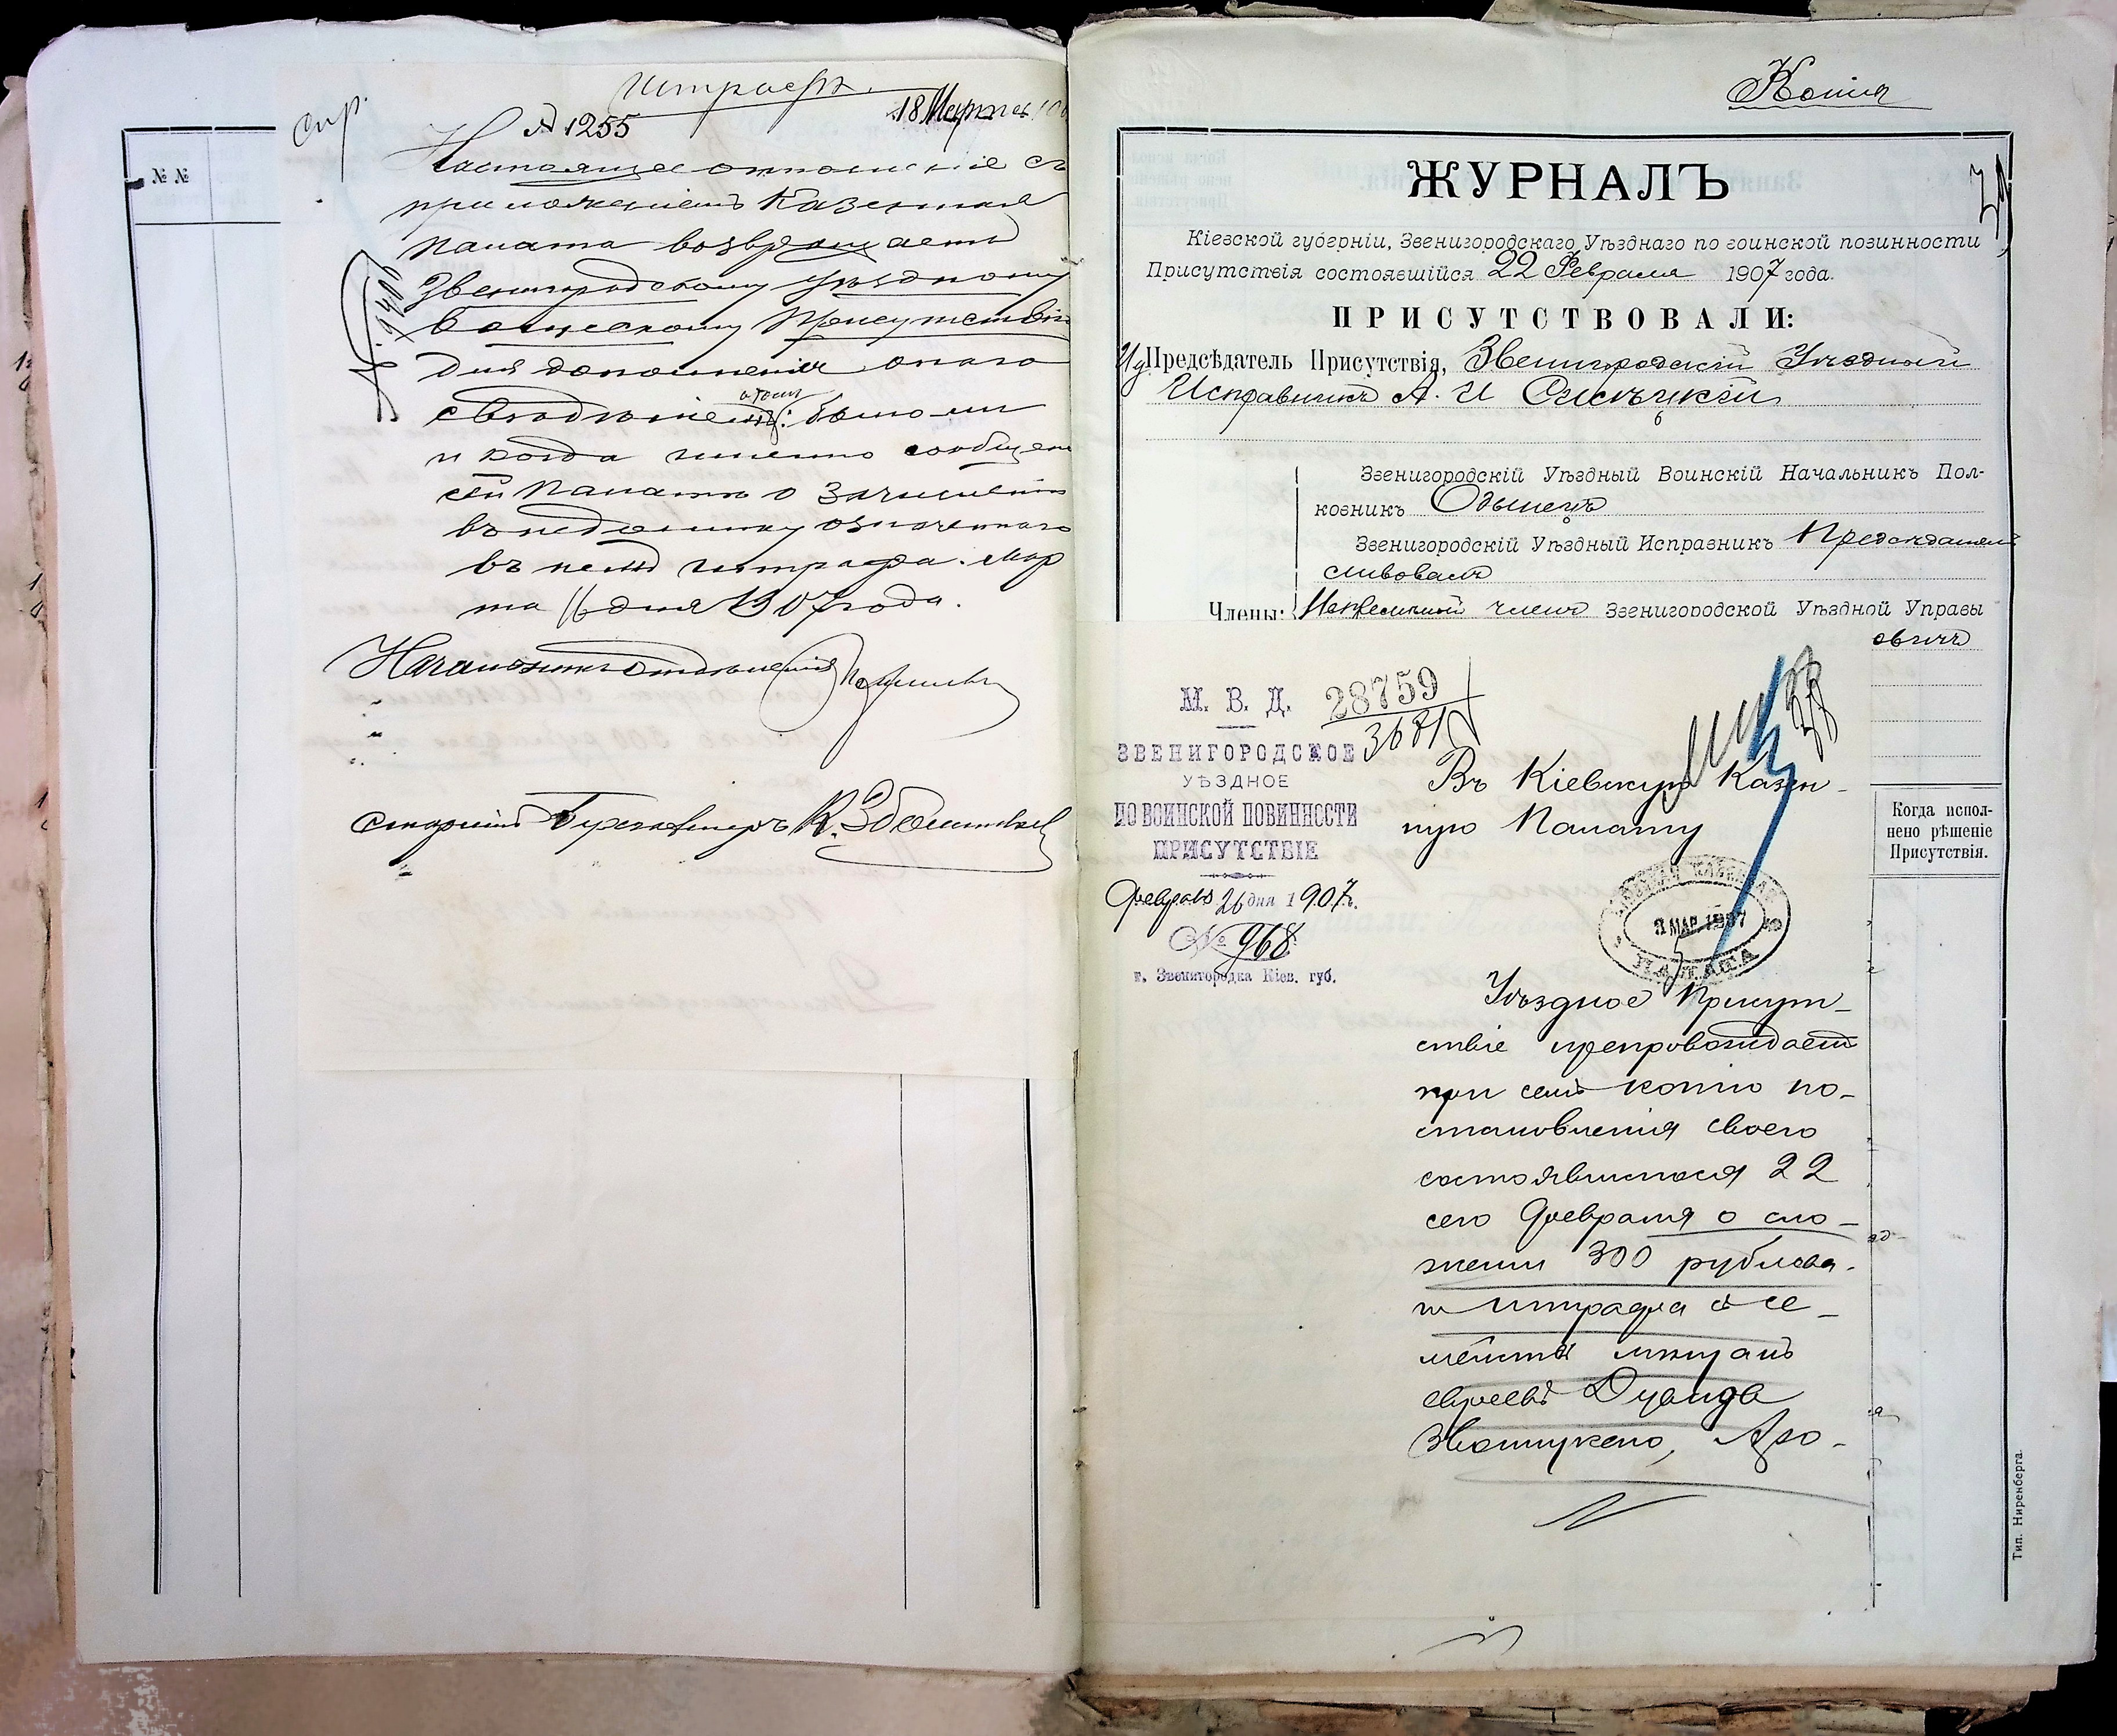 Штрафъ.
стр.
№ 1255
18 Марта
№ №
Настоящее отношеніе съ
приложеніемъ Казенная
Палата возвращаетъ
Звенигородскому Уѣздному
Воинскому Присутствію
для дополненія онаго
свѣдѣніемъ: было ли
и когда именно сообщено
сей Палатѣ о зачисленіи
въ недоимку означеннаго
въ немъ штрафа. Мар
та 16 дня 1907 года.
Начальникъ Отдѣленія
Старшій Бухгалтеръ К.
Копія
ЖУРНАЛЪ
Кіевской губерніи, Звенигородскаго Уѣзднаго по воинской повинности
Присутствія состоявшійся 22 Февраля 1907 года.
ПРИСУТСТВОВАЛИ:
И д Предсѣдатель Присутствія, Звенигородскій Уѣздный
Исправникъ А. И
Звенигородскій Уѣздный Воинскій Начальникъ Пол-
ковникъ Одынецъ
Звенигородскій Уѣздный Исправникъ Предсѣдатель
ствовалъ
Члены: Непремѣнный членъ Звенигородской Уѣздной Управы
евичъ
М. В. Д.
28759
ЗВЕНИГОРОДСКОЕ
УѢЗДНОЕ
ПО ВОИНСКОЙ ПОВИННОСТИ
ПРИСУТСТВІЕ
Февраля 26 дня 1907 г.
№ 968
г. Звенигородка Кіев. губ.
Въ Кіевскую Казен-
ную Палату
КІЕВСКАЯ КАЗЕННАЯ
3 МАР. 1907
ПАЛАТА
Когда испол-
нено рѣшеніе
Присутствія.
Уѣздное Присут-
ствіе препровождаетъ
при семъ копію по-
становленія своего
состоявшагося 22
сего Февраля о сло-
женіи 300 рублева-
го штрафа съ се-
мействъ мѣщанъ
евреевъ Дувида
Звоницкаго, Аро-
Тип. Ниренберга.